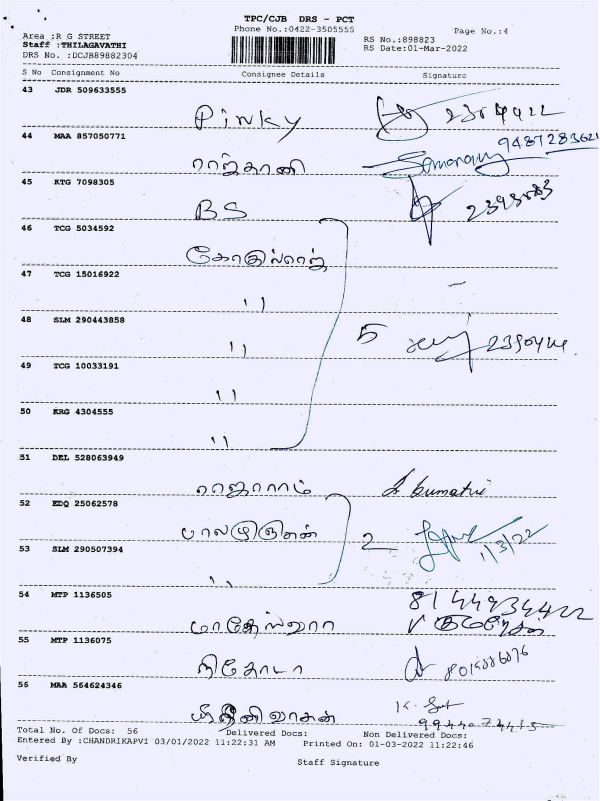 TPC/CJB DRS - PCT
Phone No.:0422-3505555
Page No.:4
Area :R G STREET
RS No.:898823
Staff :THILAGAVATHI
RS Date:01-Mar-2022
DRS No. :DCJB89882304
S No Consignment No Consignee Details Signature
43 JDR 509633555
Pinky
44 MAA 857050771
ராஜ்தானி 9487283621
45 KTG 7098305
BS
46 TCG 5034592
கோகுல்ராஜ்
47 TCG 15016922
"
48 SLM 290443858
" 5
49 TCG 10033191
"
50 KRG 4304555
"
51 DEL 528063949
ராஜாராம்
52 EDQ 25062578
பாலமுருகன் 2 1/3/22
53 SLM 290507394
"
54 MTP 1136505
மாதேஸ்வரா
55 MTP 1136075
56 MAA 564624346
ஸ்ரீனிவாசன்
Total No. Of Docs: 56 Delivered Docs: Non Delivered Docs:
Entered By :CHANDRIKAPVI 03/01/2022 11:22:31 AM Printed On: 01-03-2022 11:22:46
Verified By Staff Signature